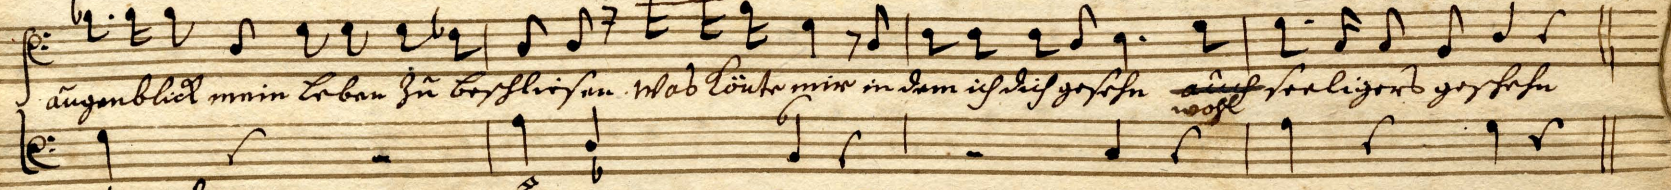 augenblick mein Leben zu beschliesen was könte mir in dem ich dich gesehn auch seeligers geschehn
wohl